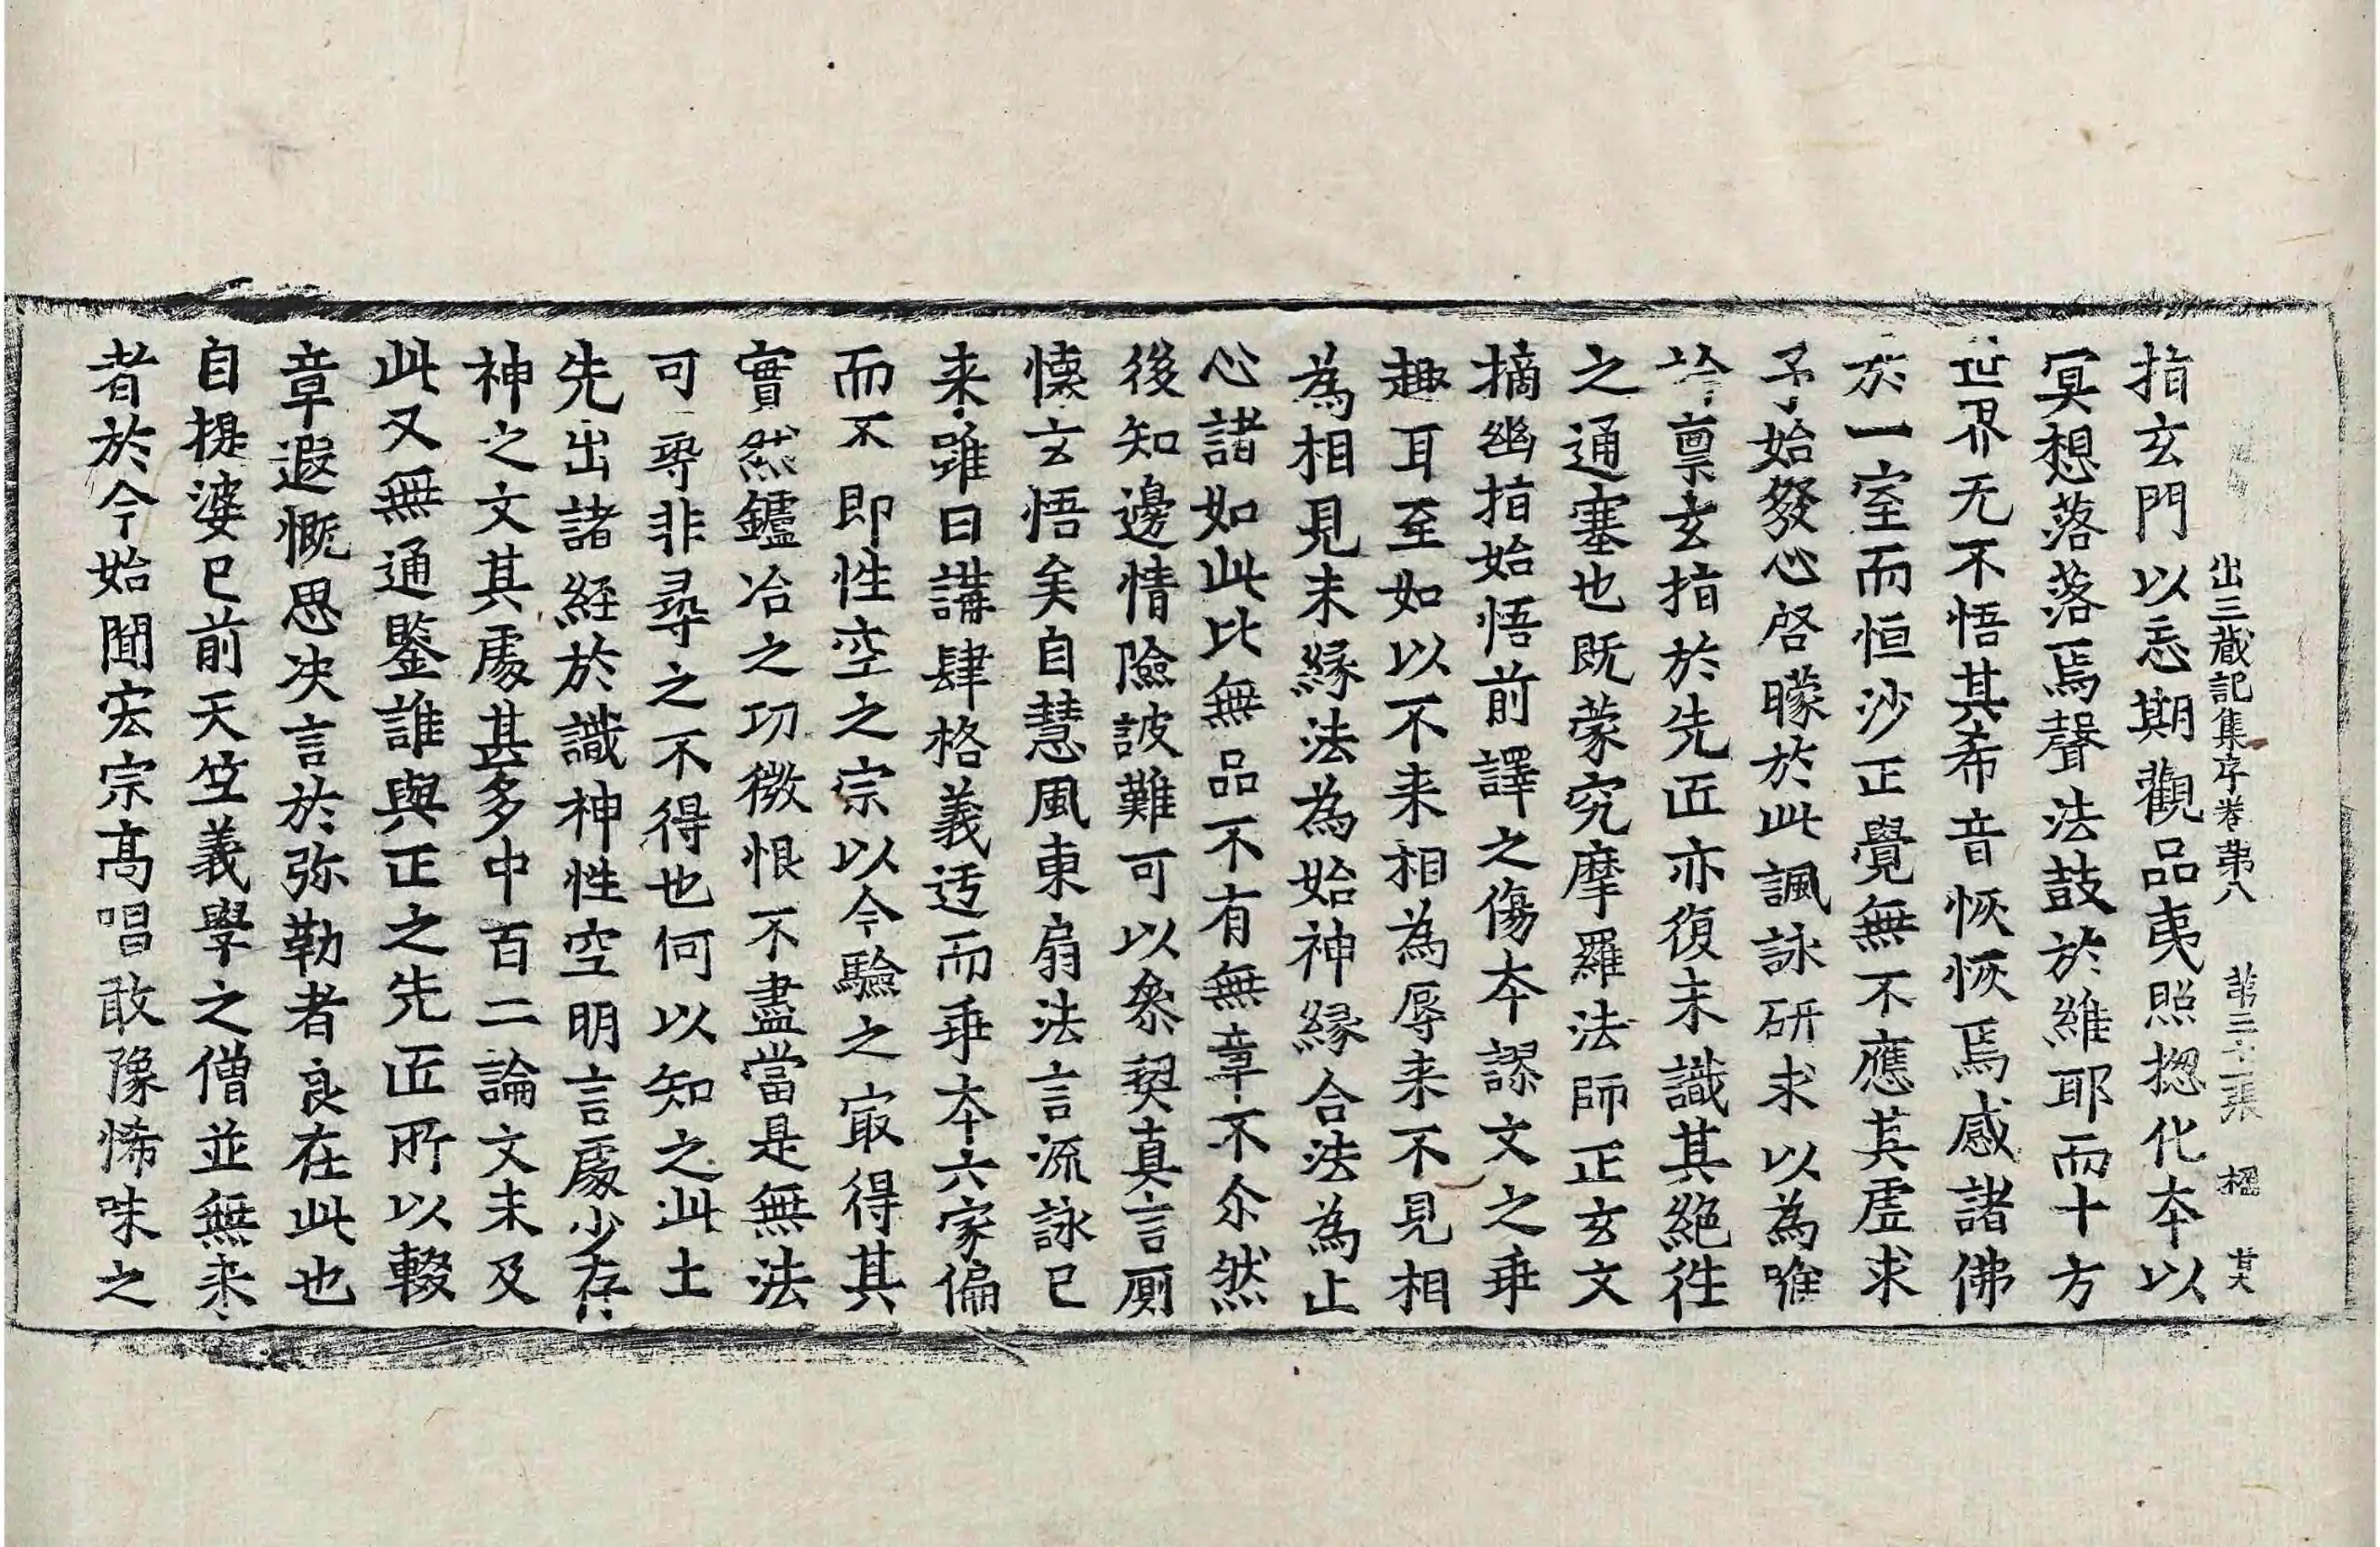 出三藏記集序卷第八 第二十二張 楹
指玄門以忘期觀品夷照揔化本以
冥想落落焉聲法鼓於維耶而十方
世界无不悟其希音恢恢焉感諸佛
於一室而恒沙正覺無不應其虛求
予始發心啓矇於此諷詠研求以為喉
衿稟玄指於先匠亦復未識其絕往
之通塞也既蒙究摩羅法師正玄文
摘幽指始悟前譯之傷本謬文之乖
趣耳至如以不来相為辱来不見相
為相見未緣法為始神緣合法為止
心諸如此比無品不有無章不尒然
後知邊情險詖難可以叅契真言廁
懷玄悟矣自慧風東扇法言流詠已
来雖曰講肆格義迃而乖本六家偏
而不即性空之宗以今驗之冣得其
實然鑪冶之功微恨不盡當是無法
可尋非尋之不得也何以知之此土
先出諸經於識神性空明言處少存
神之文其處甚多中百二論文未及
此又無通鑒誰與正之先匠所以輟
章遐慨思决言於弥勒者良在此也
自提婆已前天竺義學之僧並無来
者於今始聞宏宗高唱敢豫悕味之